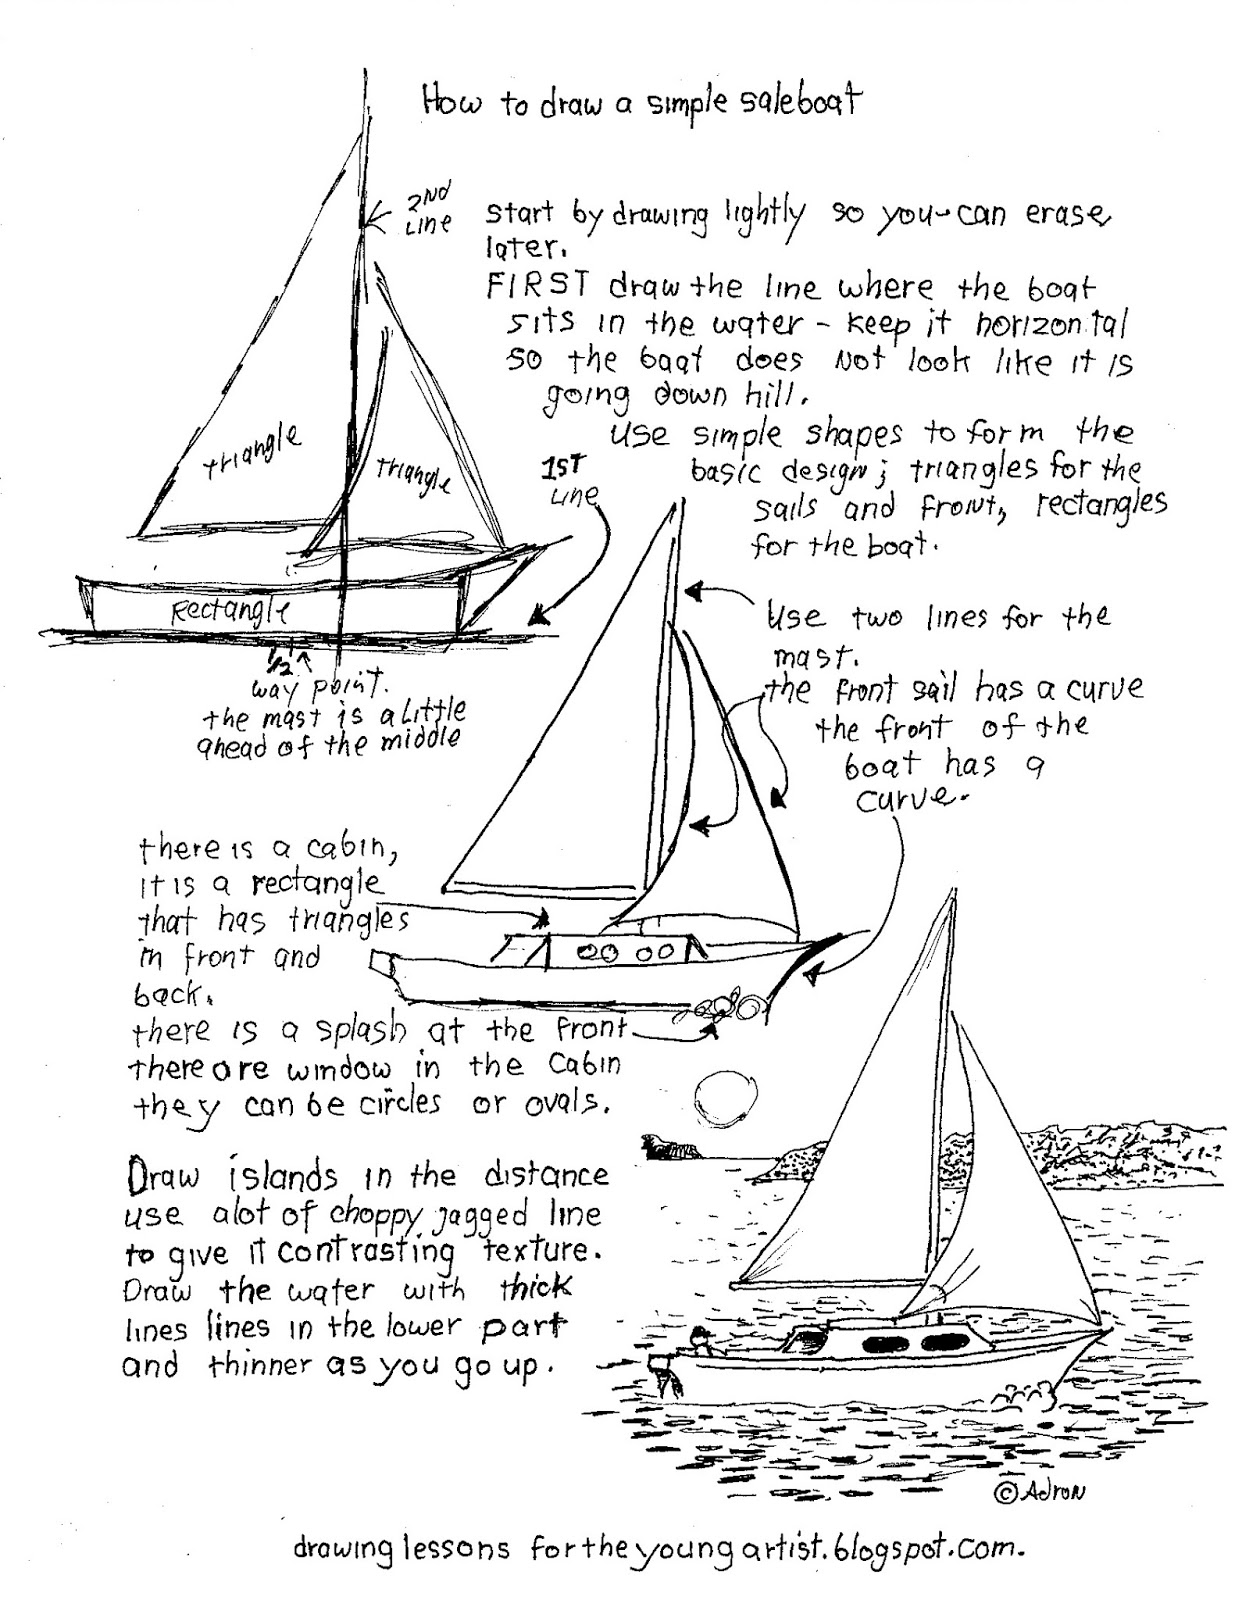 How to draw a simple saleboat
2ND
Line
start by drawing lightly so you can erase
later.
FIRST draw the line where the boat
sits in the water - keep it horizontal
so the boat does not look like it is
going down hill.
use simple shapes to form the
basic design; triangles for the
sails and front, rectangles
for the boat.
triangle
triangle
1ST
Line
Rectangle
1/2
way point.
the mast is a little
ahead of the middle
Use two lines for the
mast.
the front sail has a curve
the front of the
boat has a
curve.
there is a cabin,
it is a rectangle
that has triangles
in front and
back.
there is a splash at the front
there are window in the cabin
they can be circles or ovals.
Draw islands in the distance
use alot of choppy jagged line
to give it contrasting texture.
Draw the water with thick
lines lines in the lower part
and thinner as you go up.
© Adron
drawing lessons fortheyoungartist.blogspot.com.